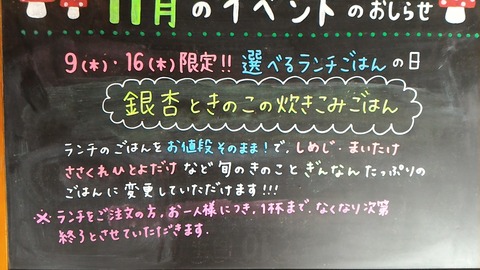 11月のイベントのおしらせ
9(木)・16(木)限定!!選べるランチごはんの日
銀杏ときのこの炊きこみごはん
ランチのごはんをお値段そのまま!で、しめじ・まいたけ
ささくれひとよだけなど旬のきのことぎんなんたっぷりの
ごはんに変更していただけます!!!
※ランチをご注文の方、お一人様につき、1杯まで、なくなり次第
終了とさせていただきます。